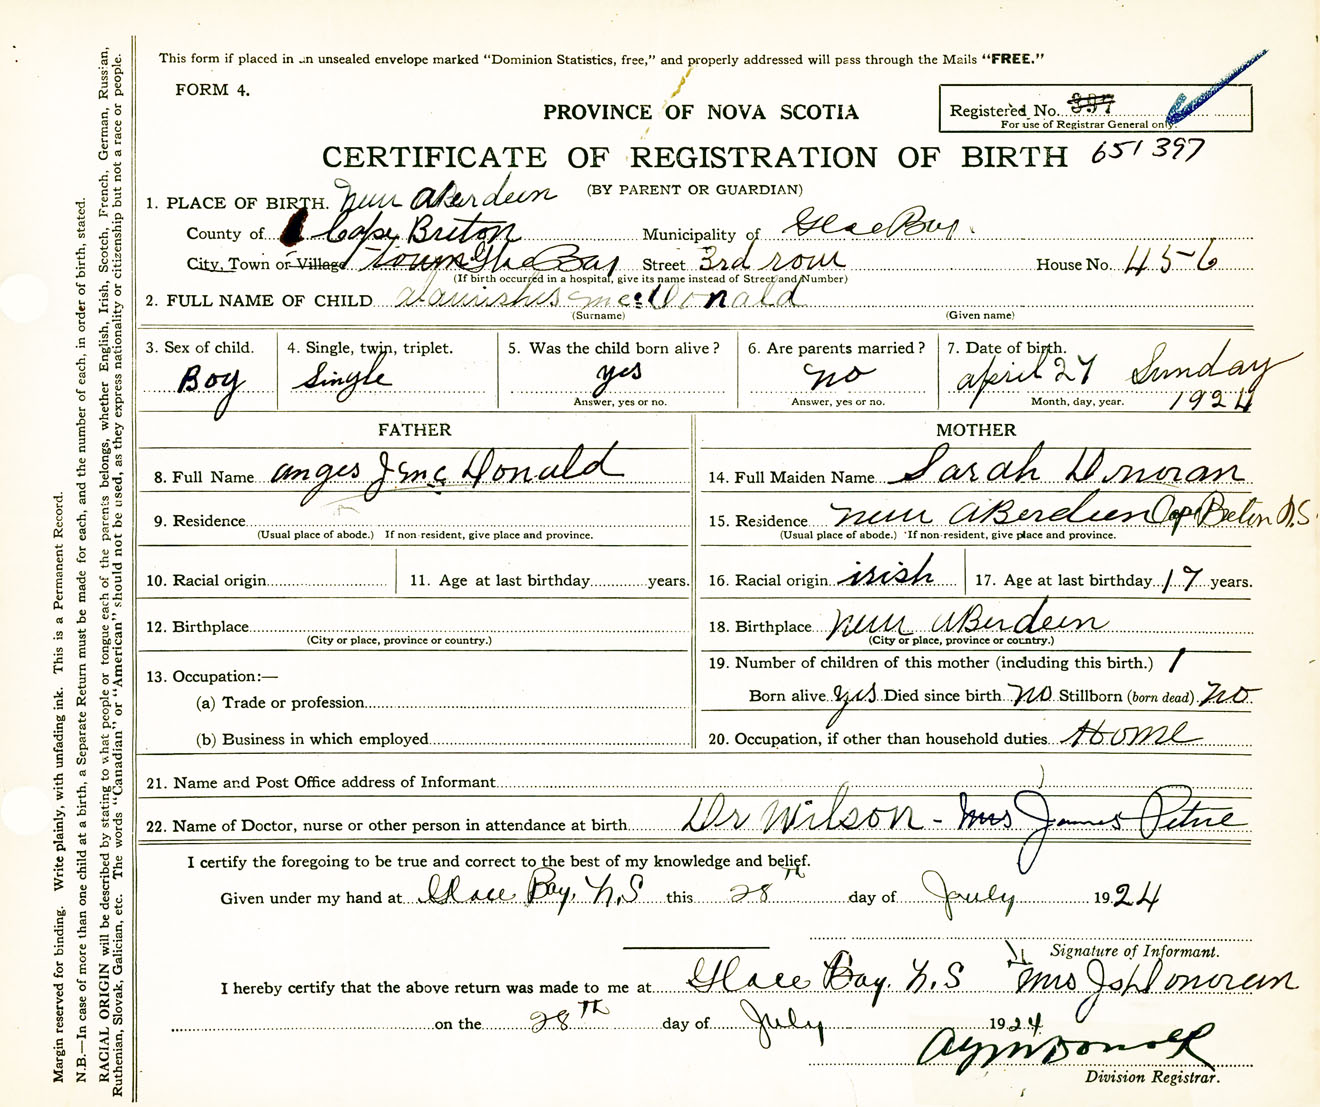 This form if placed in an unsealed envelope marked "Dominion Statistics, free," and properly addressed will pass through the Mails "FREE."
FORM 4.
PROVINCE OF NOVA SCOTIA
Registered No. 397
For use of Registrar General only.
CERTIFICATE OF REGISTRATION OF BIRTH 651 397
(BY PARENT OR GUARDIAN)
1. PLACE OF BIRTH. New Aberdeen
County of Cape Breton Municipality of Glace Bay.
City, Town or Village town Glace Bay Street 3rd row House No. 45-6
(If birth occurred in a hospital, give its name instead of Street and Number)
2. FULL NAME OF CHILD McDonald
(Surname) (Given name)
3. Sex of child. 4. Single, twin, triplet. 5. Was the child born alive? 6. Are parents married? 7. Date of birth.
Boy Single yes no april 27 Sunday
Answer, yes or no. Answer, yes or no. Month, day, year. 1924
FATHER MOTHER
8. Full Name anges J Mc Donald 14. Full Maiden Name Sarah Donovan
9. Residence 15. Residence New ABerdeen Cape Breton N.S.
(Usual place of abode.) If non-resident, give place and province. (Usual place of abode.) If non-resident, give place and province.
10. Racial origin 11. Age at last birthday years. 16. Racial origin irish 17. Age at last birthday 17 years.
12. Birthplace 18. Birthplace New ABerdeen
(City or place, province or country.) (City or place, province or country.)
13. Occupation:— 19. Number of children of this mother (including this birth.) 1
(a) Trade or profession Born alive yes Died since birth no Stillborn (born dead) no
(b) Business in which employed 20. Occupation, if other than household duties Home
21. Name and Post Office address of Informant
22. Name of Doctor, nurse or other person in attendance at birth Dr Wilson - Mrs James Petrie
I certify the foregoing to be true and correct to the best of my knowledge and belief.
Given under my hand at Glace Bay, N.S this 28th day of July 1924
Signature of Informant.
I hereby certify that the above return was made to me at Glace Bay. N.S Mrs Js Donovan
on the 28TH day of July 1924
Division Registrar.
Margin reserved for binding. Write plainly, with unfading ink. This is a Permanent Record.
N.B.—In case of more than one child at a birth, a Separate Return must be made for each, and the number of each, in order of birth, stated.
RACIAL ORIGIN will be described by stating to what people or tongue each of the parents belongs, whether English, Irish, Scotch, French, German, Russian,
Ruthenian, Slovak, Galician, etc. The words "Canadian" or "American" should not be used, as they express nationality or citizenship but not a race or people.